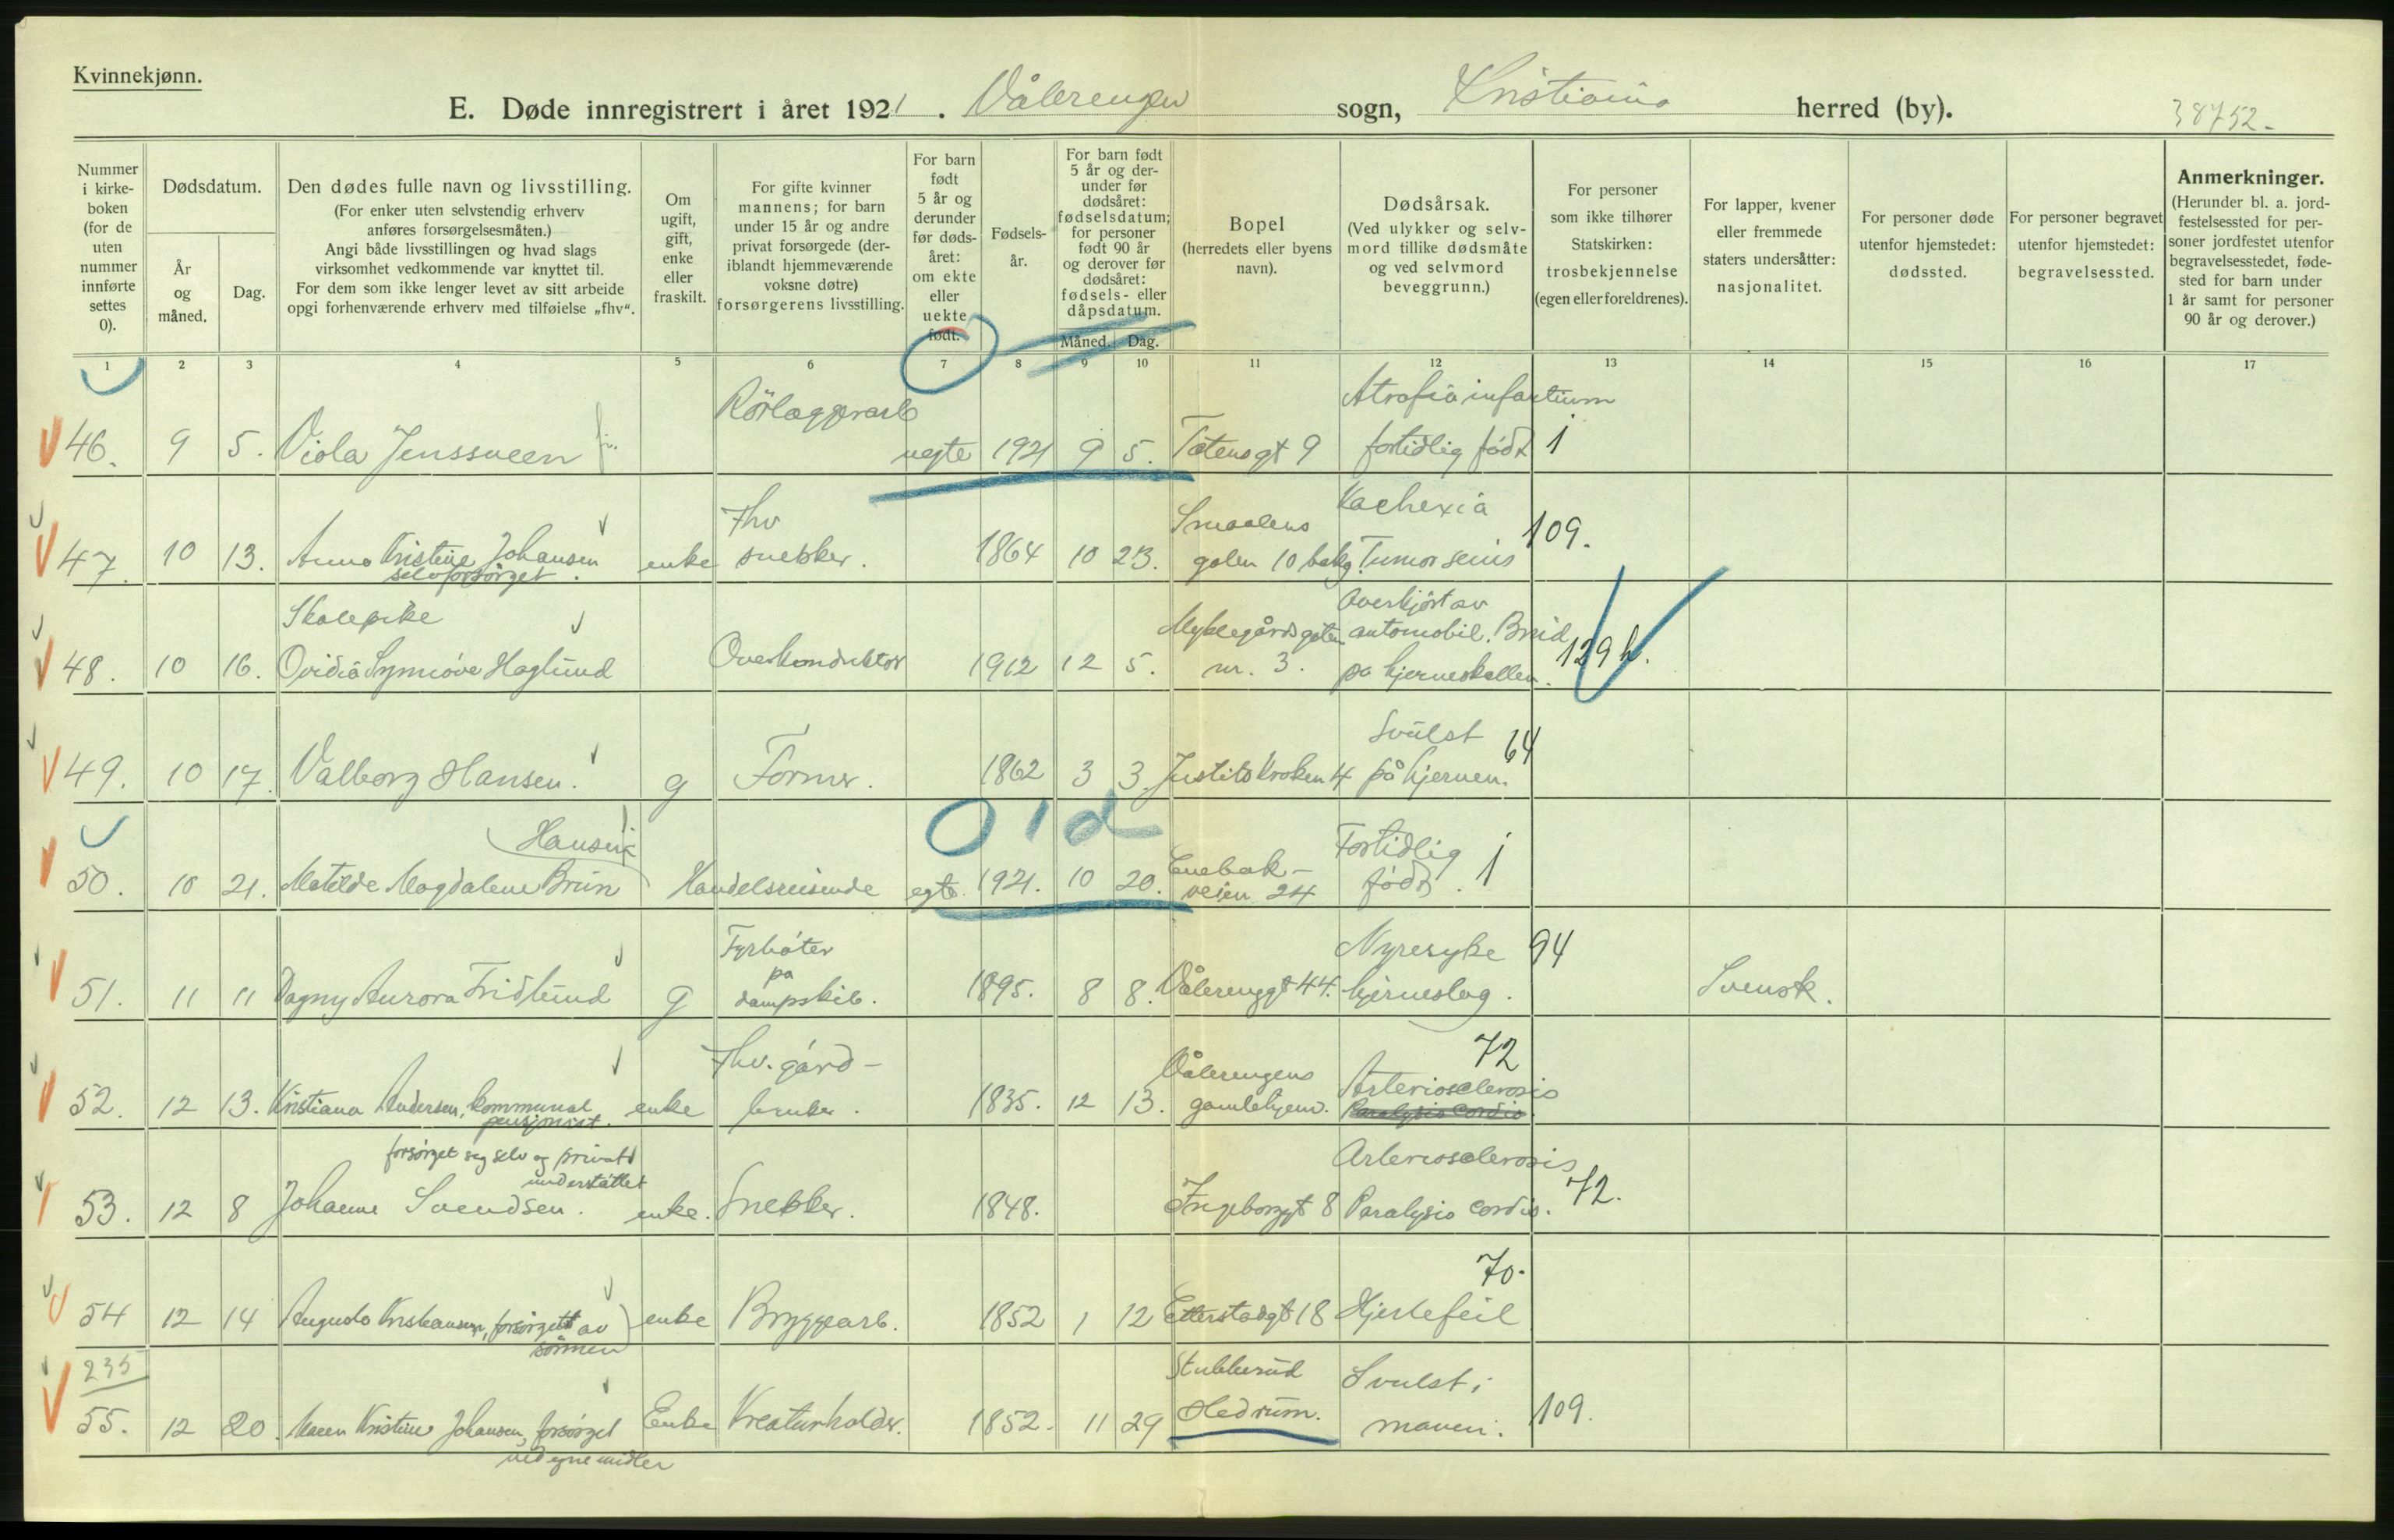 Kvinnekjønn.
E. Døde innregistrert i året 1921. Vålerengen sogn, Kristiania herred (by).
38752.-
Nummer i kirke- boken (for de uten nummer innførte settes 0).
Dødsdatum.
År og måned.
Dag.
Den dødes fulle navn og livsstilling.
(For enker uten selvstendig erhverv anføres forsørgelsesmåten.)
Angi både livsstillingen og hvad slags virksomhet vedkommende var knyttet til.
For dem som ikke lenger levet av sitt arbeide opgi forhenværende erhverv med tilføielse „fhv“.
Om ugift, gift, enke eller fraskilt.
For gifte kvinner mannens; for barn under 15 år og andre privat forsørgede (der- iblandt hjemmeværende voksne døtre) forsørgerens livsstilling.
For barn født 5 år og derunder før døds- året: om ekte eller uekte født.
Fødsels- år.
For barn født 5 år og der- under før dødsåret: fødselsdatum; for personer født 90 år og derover før dødsåret: fødsels- eller dåpsdatum.
Måned. Dag.
Bopel (herredets eller byens navn).
Dødsårsak. (Ved ulykker og selv- mord tillike dødsmåte og ved selvmord beveggrunn.)
For personer som ikke tilhører Statskirken: trosbekjennelse (egen eller foreldrenes).
For lapper, kvener eller fremmede staters undersåtter: nasjonalitet.
For personer døde utenfor hjemstedet: dødssted.
For personer begravet utenfor hjemstedet: begravelsessted.
Anmerkninger. (Herunder bl. a. jord- festelsessted for per- soner jordfestet utenfor begravelsesstedet, føde- sted for barn under 1 år samt for personer 90 år og derover.)
1 2 3 4 5 6 7 8 9 10 11 12 13 14 15 16 17
Rörlæggerarb Atrofia infantium
46. 9 5. Viola Jenssveen uegte 1921 9 5. Totensgt 9 fortidlig födt 1
Fhv Smaalens Kachexia
47. 10 13. Anna Kristine Johansen enke snekker. 1864 10 23. gaten 10 bakg. Tumor 109.
selvforsörget.
Skolepike Overkjört av
48. 10 16. Ovidia Synnöve Haglund Overkonduktör 1912 12 5. Myklegårdsgaten nr. 3. automobil. Brud på hjerneskallen. 129 h.
Svulst 64
49. 10 17. Valborg Hansen. g Former. 1862 3 3. Justitskroken 4 på hjernen.
Hansen 0 1 d Fortidlig
50. 10 21. Matilde Magdalene Brun Handelsreisende egte. 1921. 10 20. Enebak- veien 24 födt. 1
Fyrböter Nyresyke 94
51. 11 11 Dagny Aurora Fridlund g på dampskib. 1895. 8 8. Vålerenggt 44. hjerneslag. Svensk.
Fhv. gård- Vålerengens 72
52. 12 13. Kristiana Andersen, kommunal pensjonist. enke bruker. 1835. 12 13. gamlehjem. Arteriosclerosis
Paralysis cordis.
forsörget seg selv og privat understöttet Arteriosclerosis
53. 12 8 Johanne Svendsen. enke. Snekker. 1848. Ingeborggt 8 Paralysis cordis. 72.
70.
54 12 14 Augusta Kristiansen, forsörget av sönnen enke Bryggearb. 1852 1 12 Etterstadgt 18 Hjertefeil
235 Stubberud Svulst i
55. 12 20. Maren Kristine Johansen, forsörget Enke Kreaturholder. 1852. 11 29 Hedrum. maven. 109.
ved egne midler